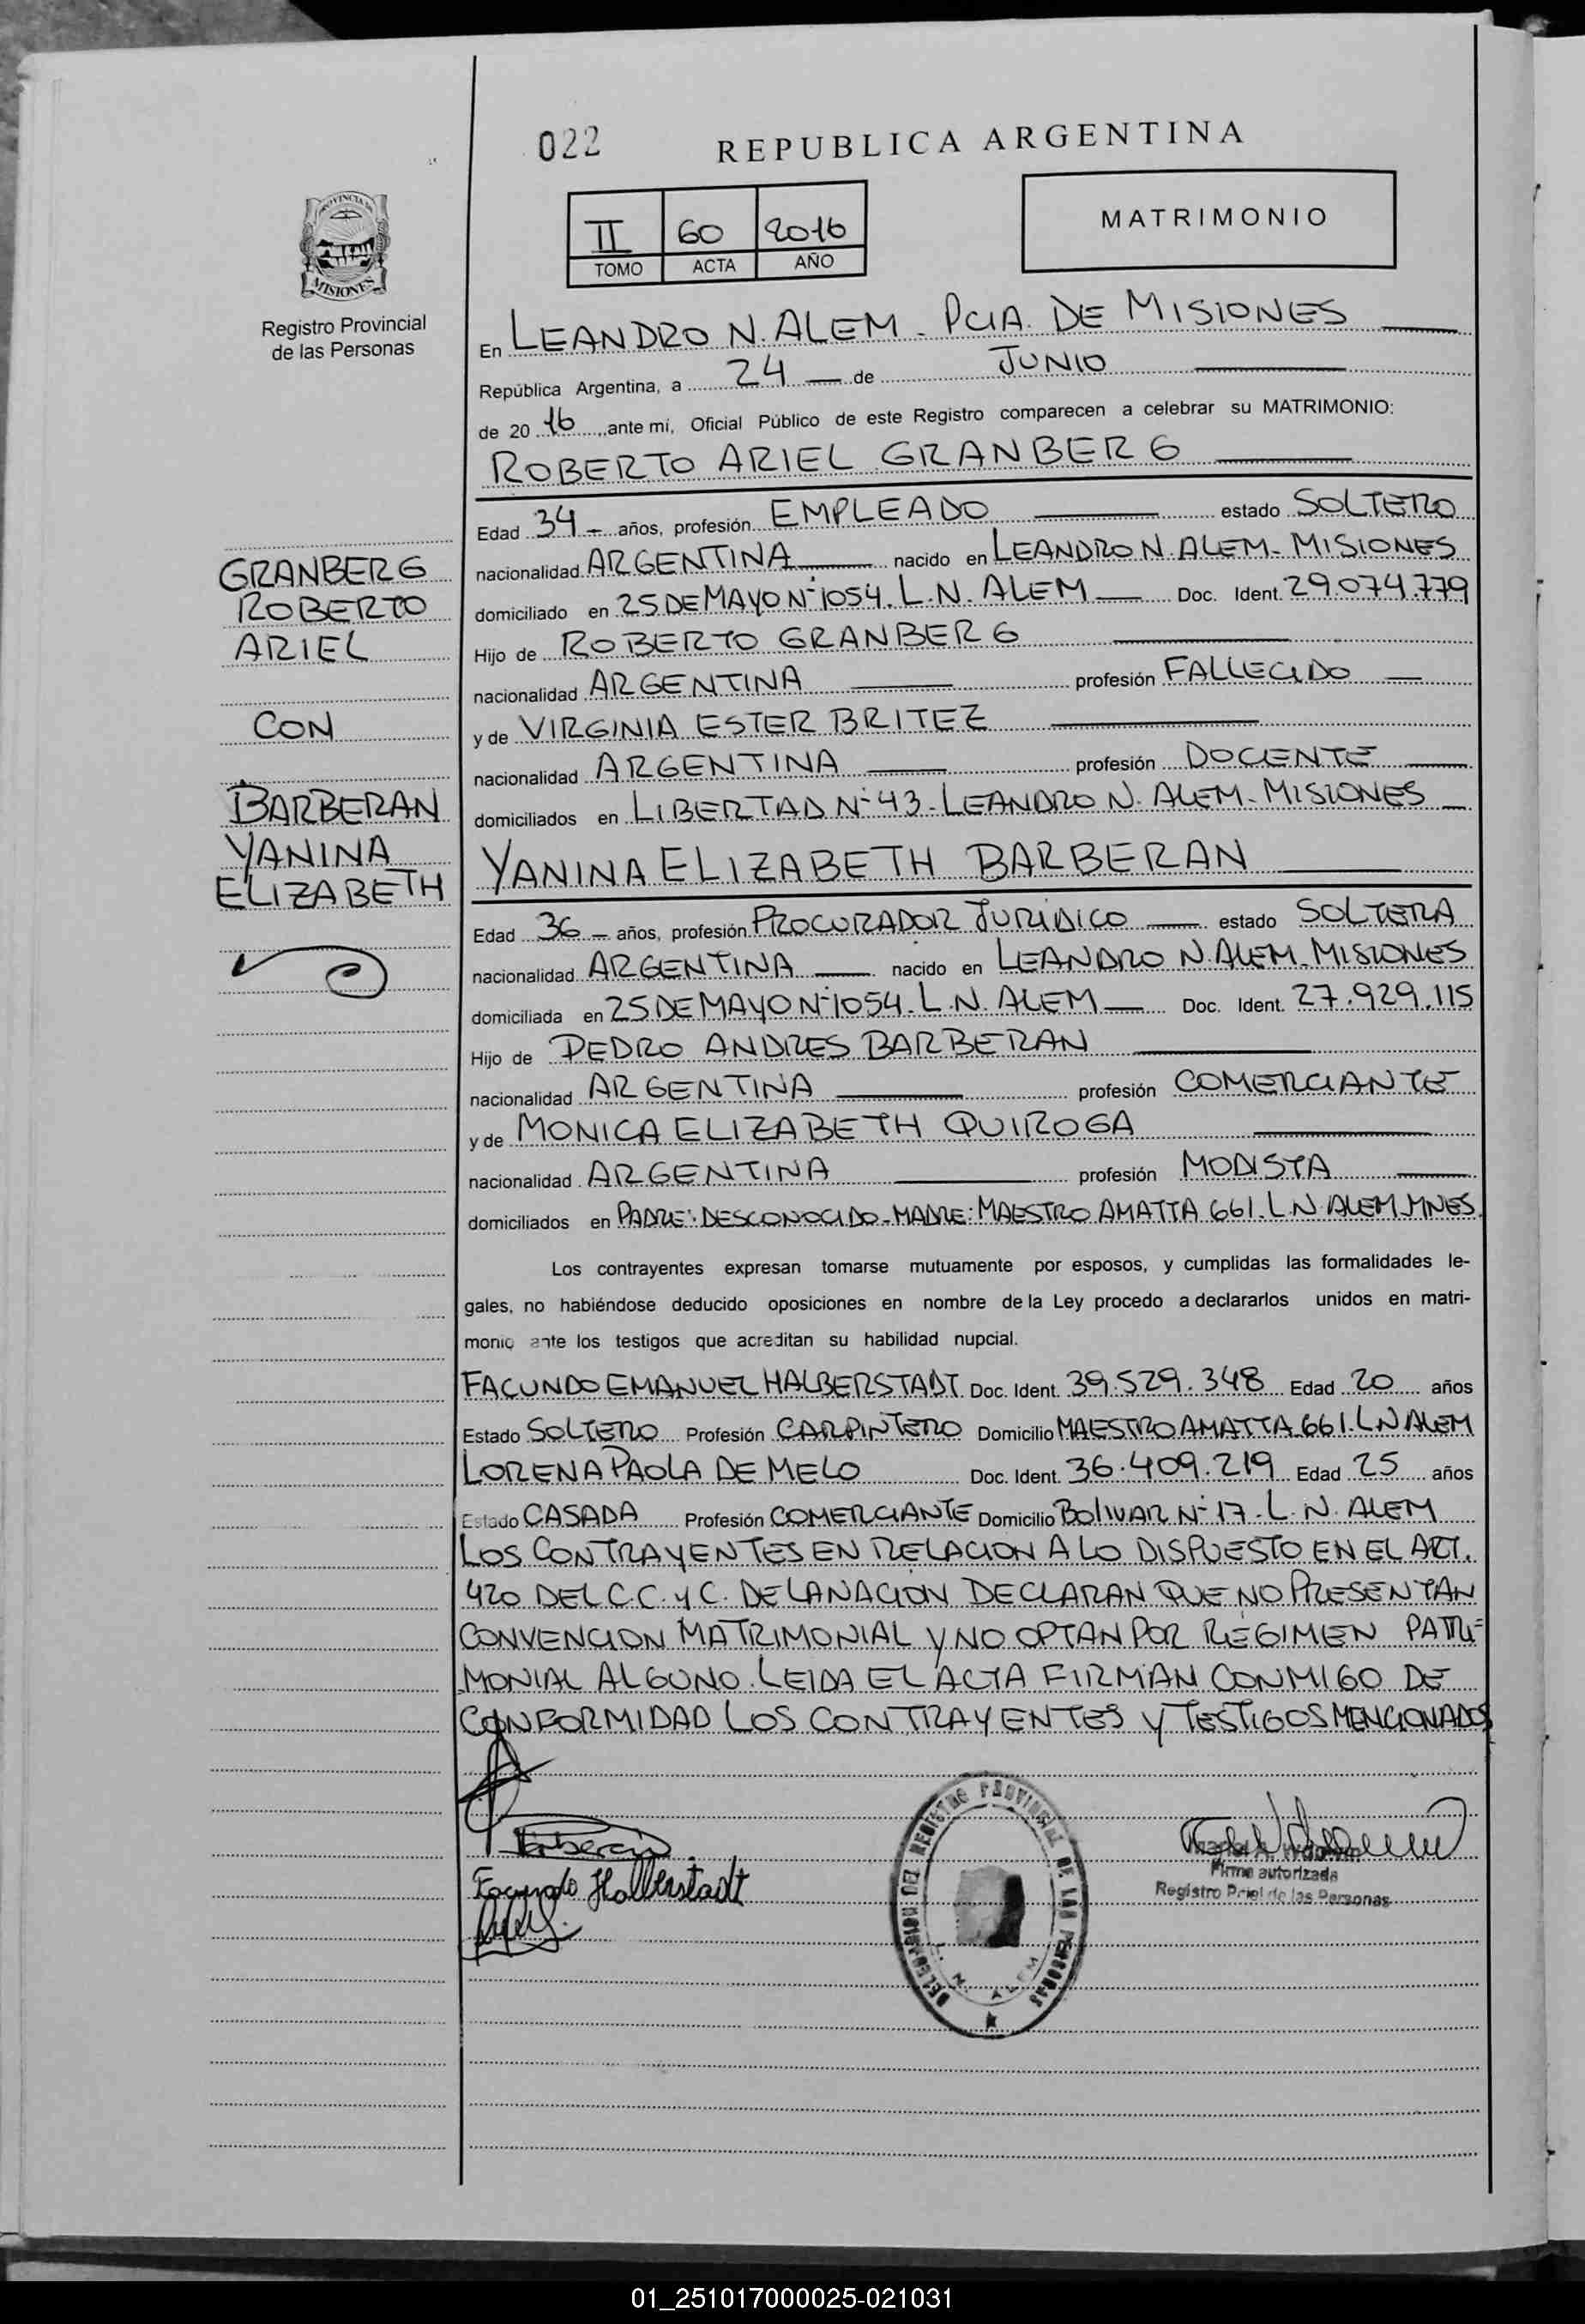 022
REPUBLICA ARGENTINA
II 60 2016
TOMO ACTA AÑO
MATRIMONIO
PROVINCIA DE
MISIONES
Registro Provincial
de las Personas
En LEANDRO N. ALEM - PCIA. DE MISIONES
República Argentina, a 24 de JUNIO
de 20 16, ante mi, Oficial Público de este Registro comparecen a celebrar su MATRIMONIO:
ROBERTO ARIEL GRANBERG
Edad 34 - años, profesión EMPLEADO estado SOLTERO
nacionalidad ARGENTINA nacido en LEANDRO N. ALEM - MISIONES
domiciliado en 25 DE MAYO Nº 1054. L.N. ALEM Doc. Ident. 29.074.779
Hijo de ROBERTO GRANBERG
nacionalidad ARGENTINA profesión FALLECIDO
y de VIRGINIA ESTER BRITEZ
nacionalidad ARGENTINA profesión DOCENTE
domiciliados en LIBERTAD Nº 43 - LEANDRO N. ALEM - MISIONES
GRANBERG
ROBERTO
ARIEL
CON
BARBERAN
YANINA
ELIZABETH
YANINA ELIZABETH BARBERAN
Edad 36 - años, profesión PROCURADOR JURIDICO estado SOLTERA
nacionalidad ARGENTINA nacido en LEANDRO N. ALEM - MISIONES
domiciliada en 25 DE MAYO Nº 1054. L.N. ALEM Doc. Ident. 27.929.115
Hijo de PEDRO ANDRES BARBERAN
nacionalidad ARGENTINA profesión COMERCIANTE
y de MONICA ELIZABETH QUIROGA
nacionalidad ARGENTINA profesión MODISTA
domiciliados en PADRE: DESCONOCIDO - MADRE: MAESTRO AMATTA 661. L.N. ALEM MNES.
Los contrayentes expresan tomarse mutuamente por esposos, y cumplidas las formalidades le-
gales, no habiéndose deducido oposiciones en nombre de la Ley procedo a declararlos unidos en matri-
monio ante los testigos que acreditan su habilidad nupcial.
FACUNDO EMANUEL HALBERSTADT Doc. Ident. 39.529.348 Edad 20 años
Estado SOLTERO Profesión CARPINTERO Domicilio MAESTRO AMATTA 661. L N ALEM
LORENA PAOLA DE MELO Doc. Ident. 36.409.219 Edad 25 años
Estado CASADA Profesión COMERCIANTE Domicilio BOLIVAR Nº 17 - L. N. ALEM
LOS CONTRAYENTES EN RELACION A LO DISPUESTO EN EL ART.
420 DEL C.C. Y C. DE LA NACION DECLARAN QUE NO PRESENTAN
CONVENCION MATRIMONIAL Y NO OPTAN POR REGIMEN PATRI-
MONIAL ALGUNO. LEIDA EL ACTA FIRMAN CONMIGO DE
CONFORMIDAD LOS CONTRAYENTES Y TESTIGOS MENCIONADOS
Facundo Halberstadt
DELEGACION DEL REGISTRO PROVINCIAL DE LAS PERSONAS
L. N. ALEM
Firma autorizada
Registro Pcial de las Personas
01_251017000025-021031